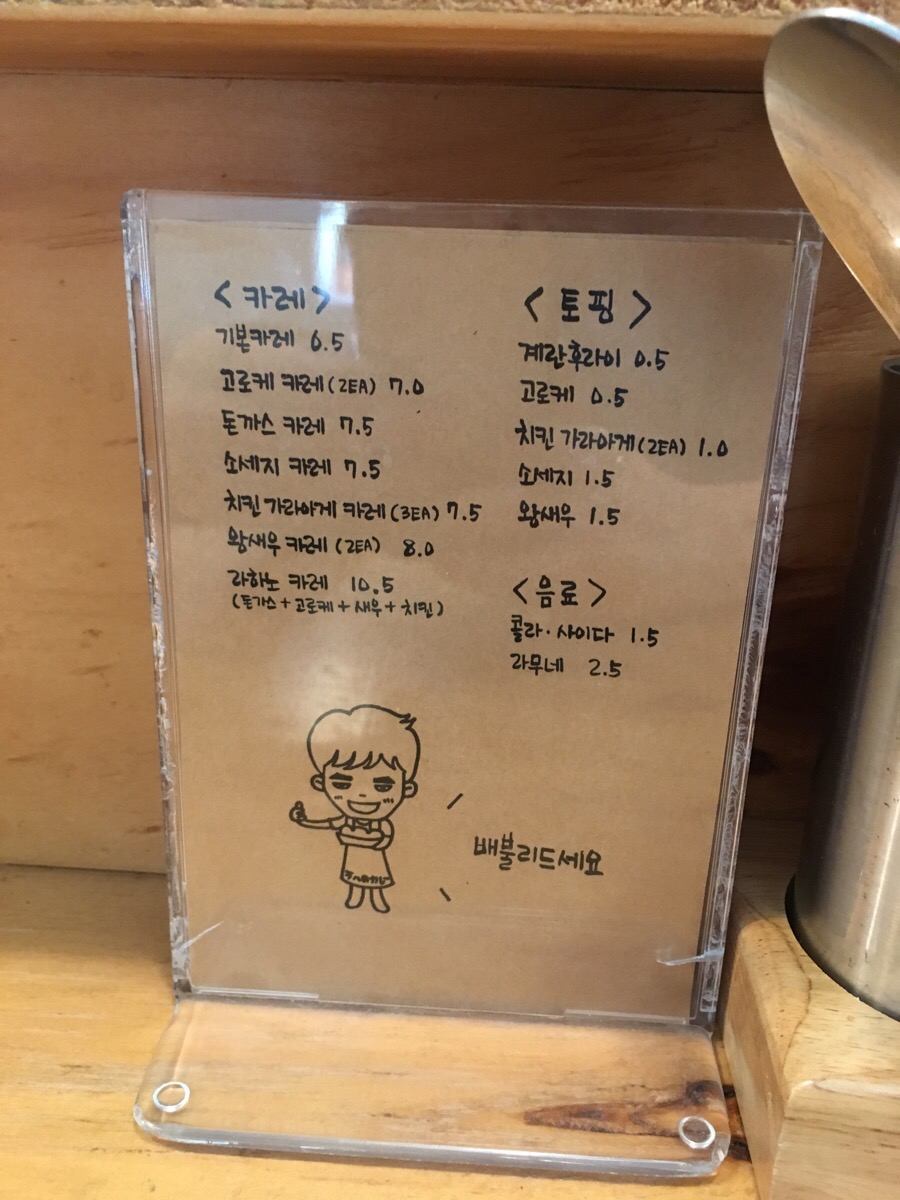 < 카레 >
기본카레 6.5
고로케 카레(2EA) 7.0
돈까스 카레 7.5
소세지 카레 7.5
치킨 가라아게 카레(3EA) 7.5
왕새우 카레(2EA) 8.0
라하노 카레 10.5
(돈가스+고로케+새우+치킨)
< 토핑 >
계란후라이 0.5
고로케 0.5
치킨 가라아게(2EA) 1.0
소세지 1.5
왕새우 1.5
< 음료 >
콜라·사이다 1.5
라무네 2.5
배불리드세요